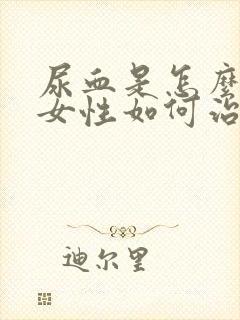 尿血是怎麼
女性如何治
迪尔里